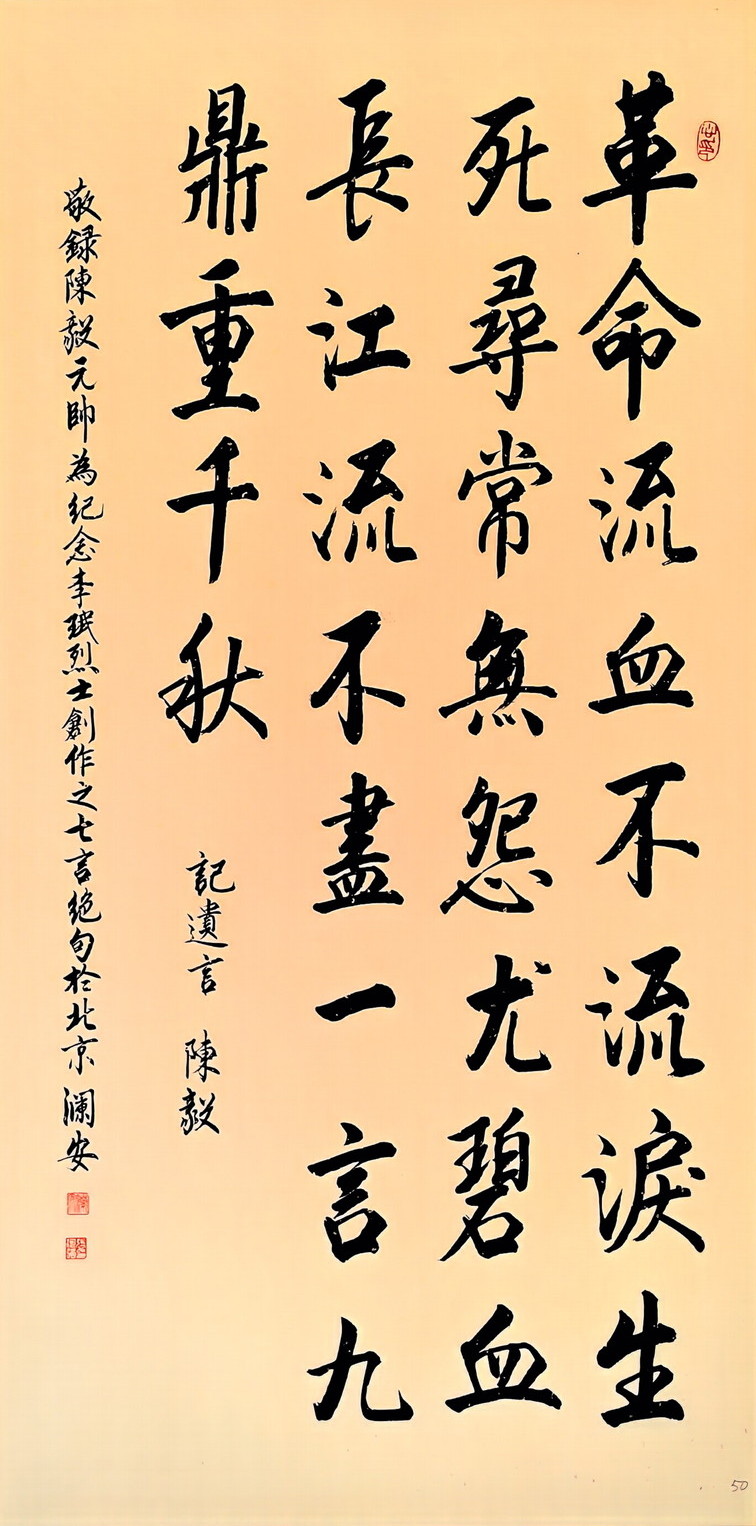 革命流血不流淚生
死尋常無怨尤碧血
長江流不盡一言九
鼎重千秋
記遺言 陳毅
敬録陳毅元帥為纪念李珉烈士創作之七言絶句於北京 澜安
50